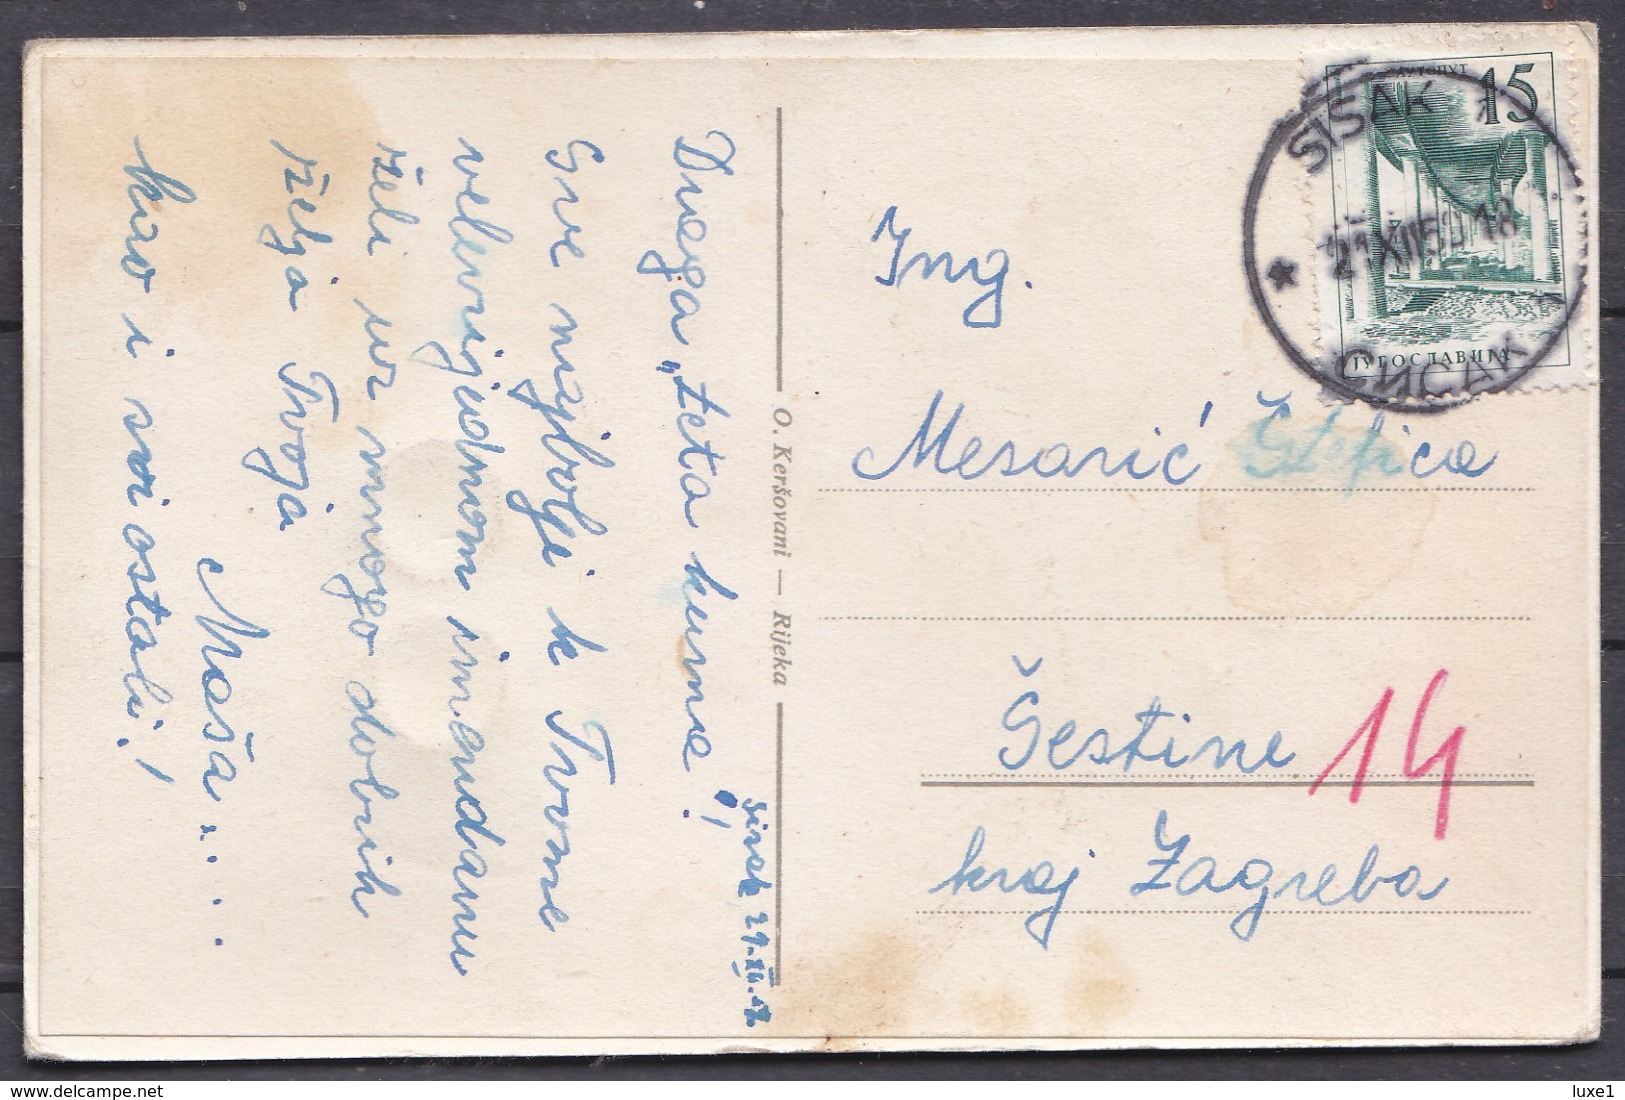 Draga „teta kume!
Sve najbolje k Tvome
velevrijednom imendanu
želi uz mnogo dobrih
želja Tvoja
Maša....
kao i svi ostali!
Sisak
O. Keršovani — Rijeka
АУТОПУТ 15
ЈУГОСЛАВИЈА
SISAK 1
21 XII 60 18
СИСАК
Ing.
Mesarić Štefica
Šestine 14
kraj Zagreba
luxe1